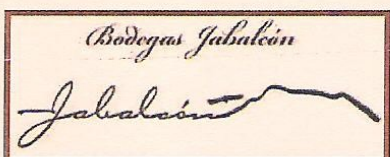 Bodegas Jabalcón
Jabalcón